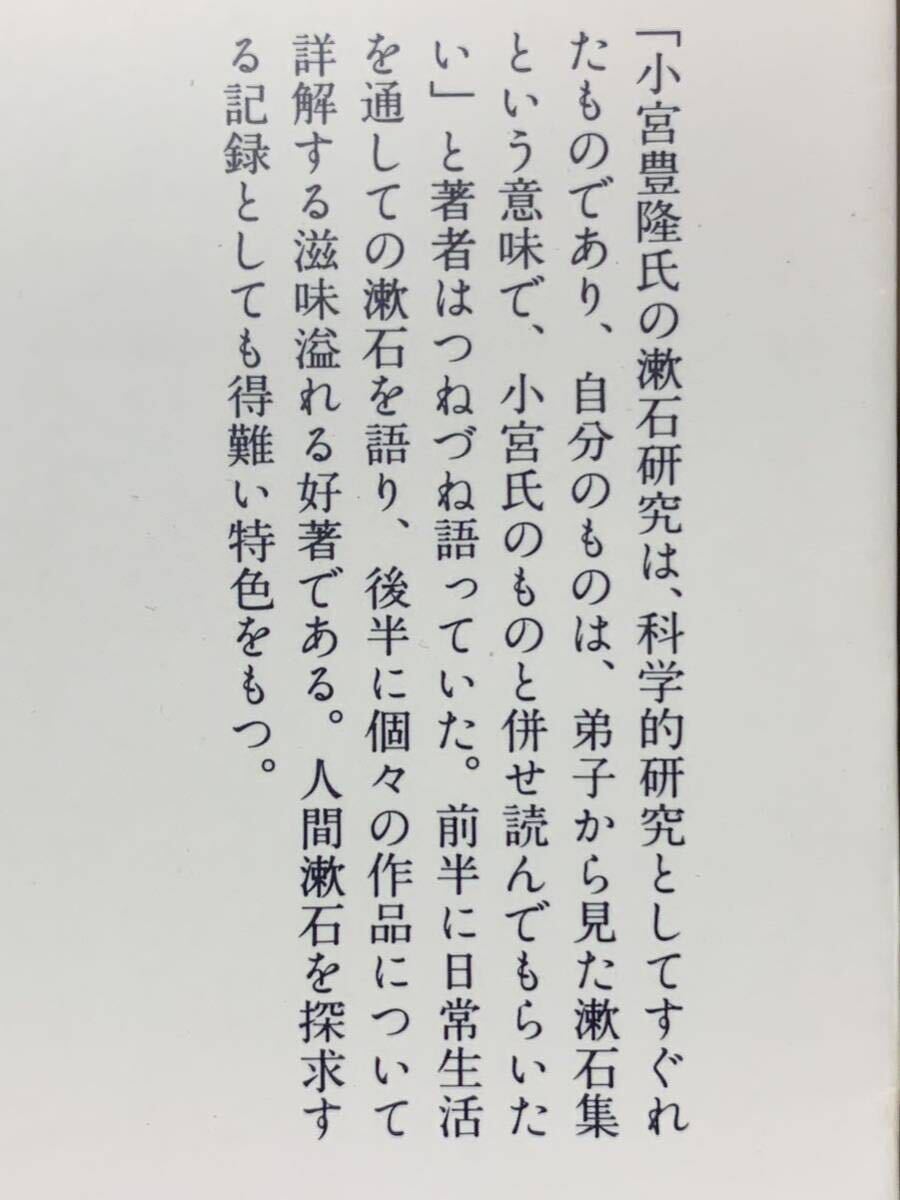 「小宮豊隆氏の漱石研究は、科学的研究としてすぐれ
たものであり、自分のものは、弟子から見た漱石集
という意味で、小宮氏のものと併せ読んでもらいた
い」と著者はつねづね語っていた。前半に日常生活
を通しての漱石を語り、後半に個々の作品について
詳解する滋味溢れる好著である。人間漱石を探求す
る記録としても得難い特色をもつ。